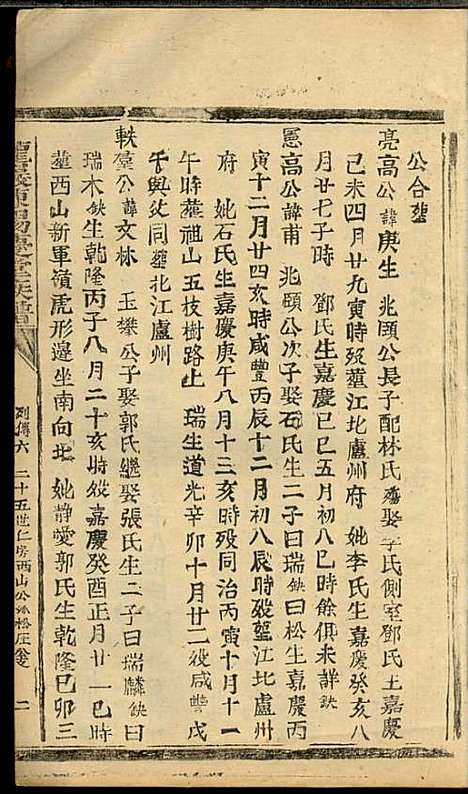 公合塟
亮高公諱庚生　兆頤公長子配林氏繼娶李氏側室鄧氏生嘉慶
己未四月廿九寅時歿塟江北廬州府　妣李氏生嘉慶癸亥八
月廿七子時　鄧氏生嘉慶己巳五月初八巳時餘俱未詳缺
憲高公諱甫　兆頤公次子娶石氏生二子曰瑞缺曰松生嘉慶丙
寅十二月廿四亥時咸豐丙辰十二月初八辰時歿塟江北盧州
府　妣石氏生嘉慶庚午八月十三亥時歿同治丙寅十月十一
午時塟祖山五枝樹路上　瑞生道光辛卯十月廿二歿咸豐戊
午與父同塟北江盧州
軼羣公諱文林　玉樊公子娶郭氏繼娶張氏生二子曰瑞麟缺曰
瑞木缺生乾隆丙子八月二十亥時歿嘉慶癸酉正月廿一巳時
塟西山新軍嶺虎形邊坐南向北　妣靜愛郭氏生乾隆己卯三
列傳六　二十五世仁房西山公
二